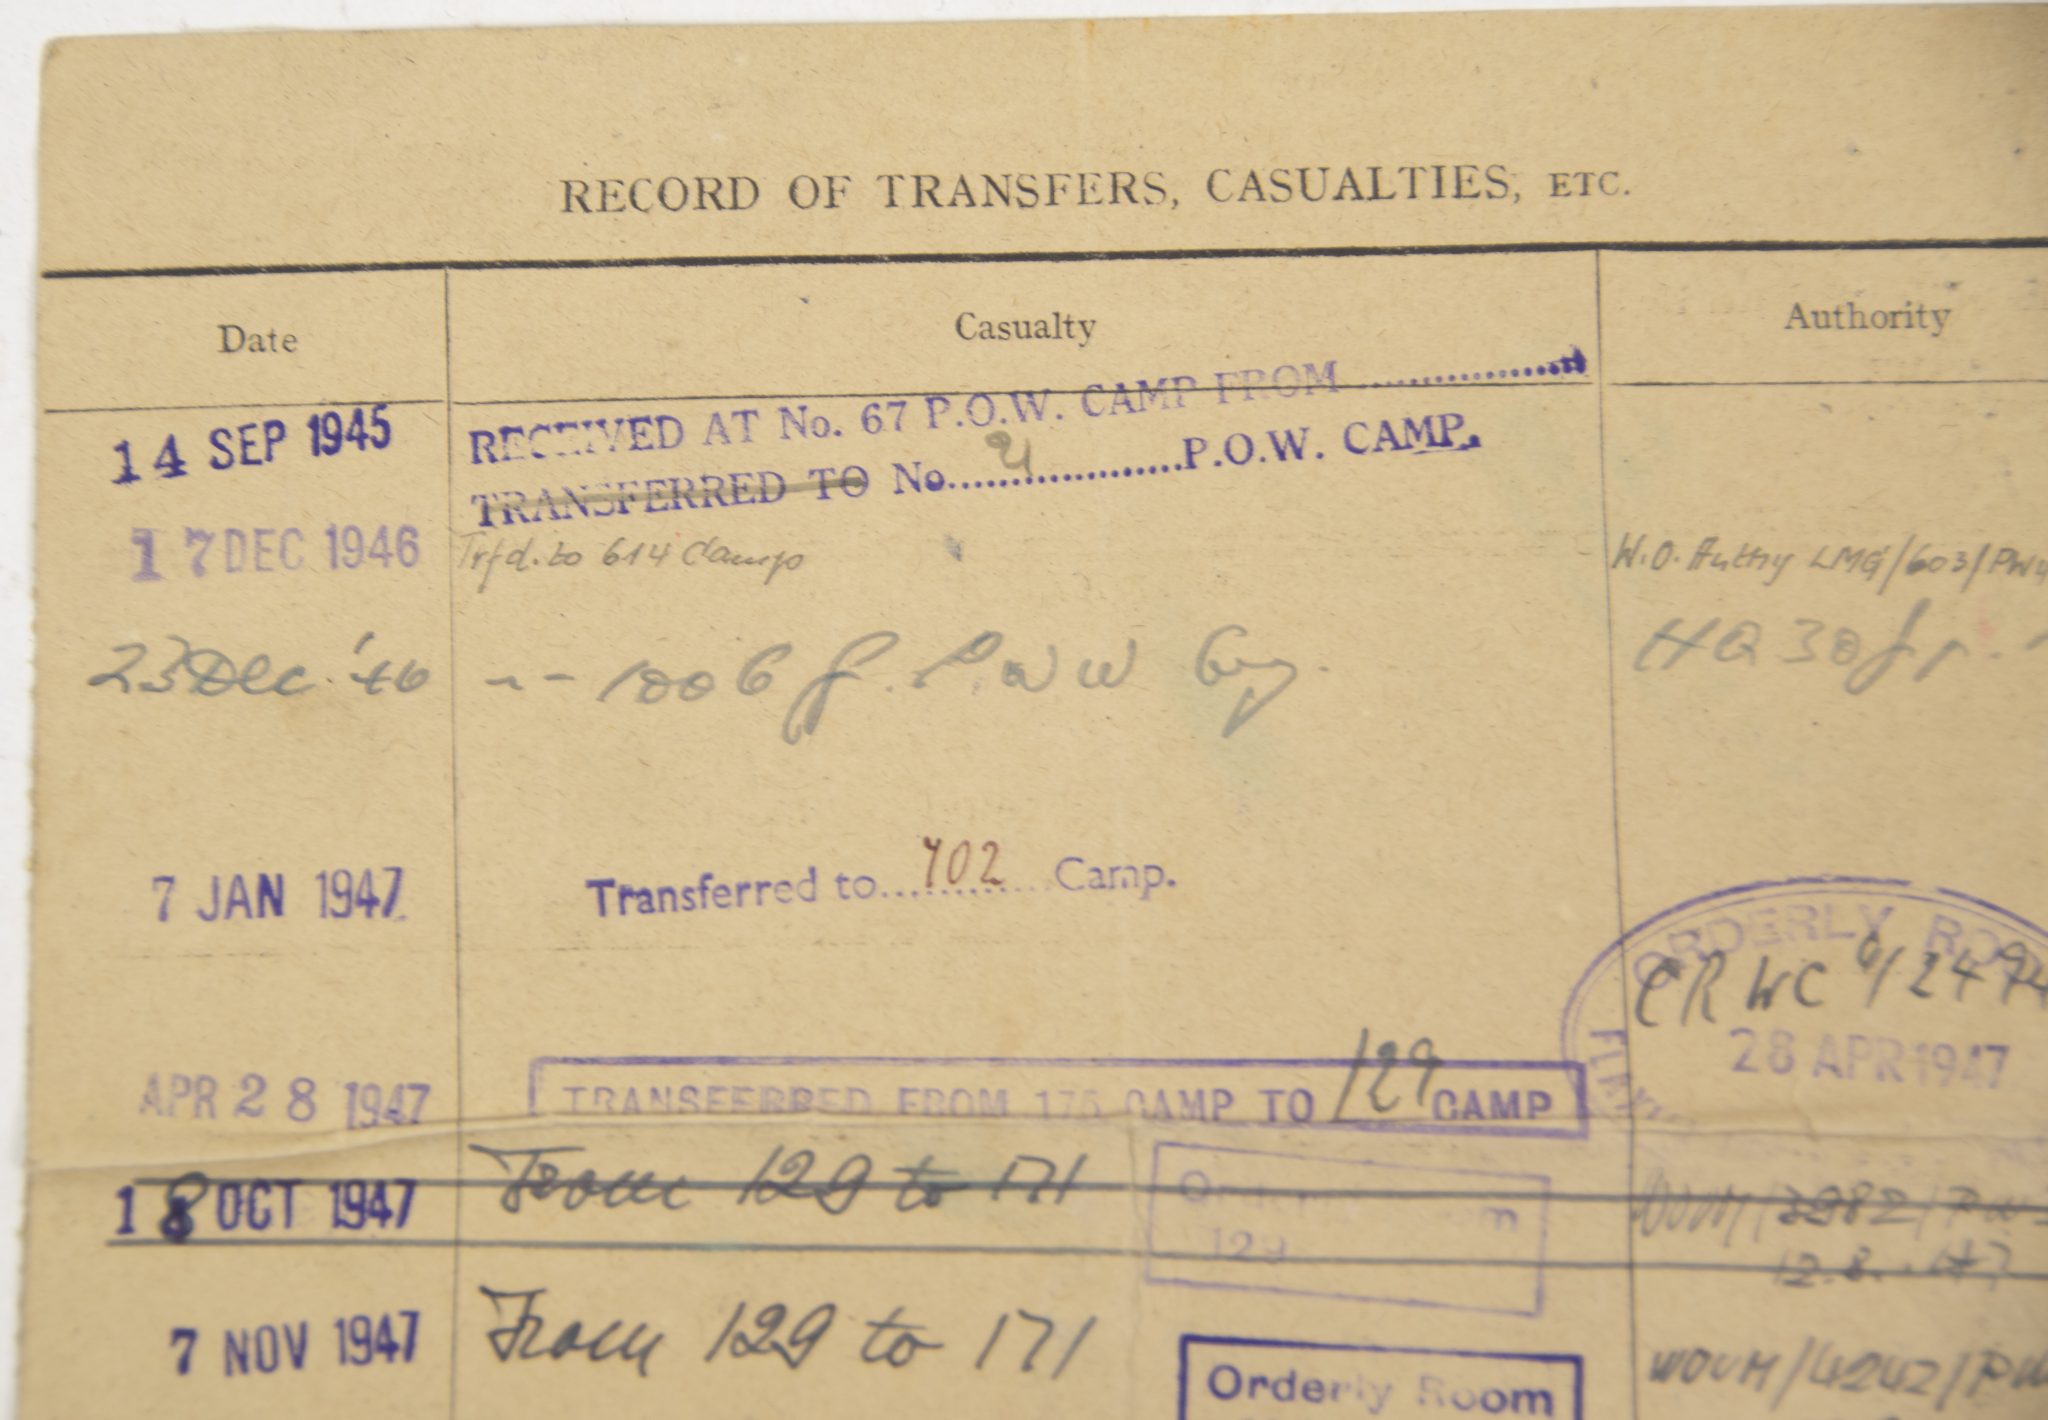 RECORD OF TRANSFERS, CASUALTIES, ETC.
Date Casualty Authority
14 SEP 1945 RECEIVED AT No. 67 P.O.W. CAMP FROM....................
TRANSFERRED TO No....................P.O.W. CAMP.
17 DEC 1946 Trfd. to 614 Camp W.O. Authy LMG/603/PW4
23 Dec '46 -- 1006 G. P.W.W Coy. HQ 30
7 JAN 1947 Transferred to...702... Camp.
ORDERLY ROO
CRWC 6/2494
28 APR 1947
APR 28 1947 TRANSFERRED FROM 175 CAMP TO 129 CAMP
18 OCT 1947 From 129 to 171 3982/PW
Orderly Room
129
12.8.47
7 NOV 1947 From 129 to 171 WOUM/4242/PW
Orderly Room